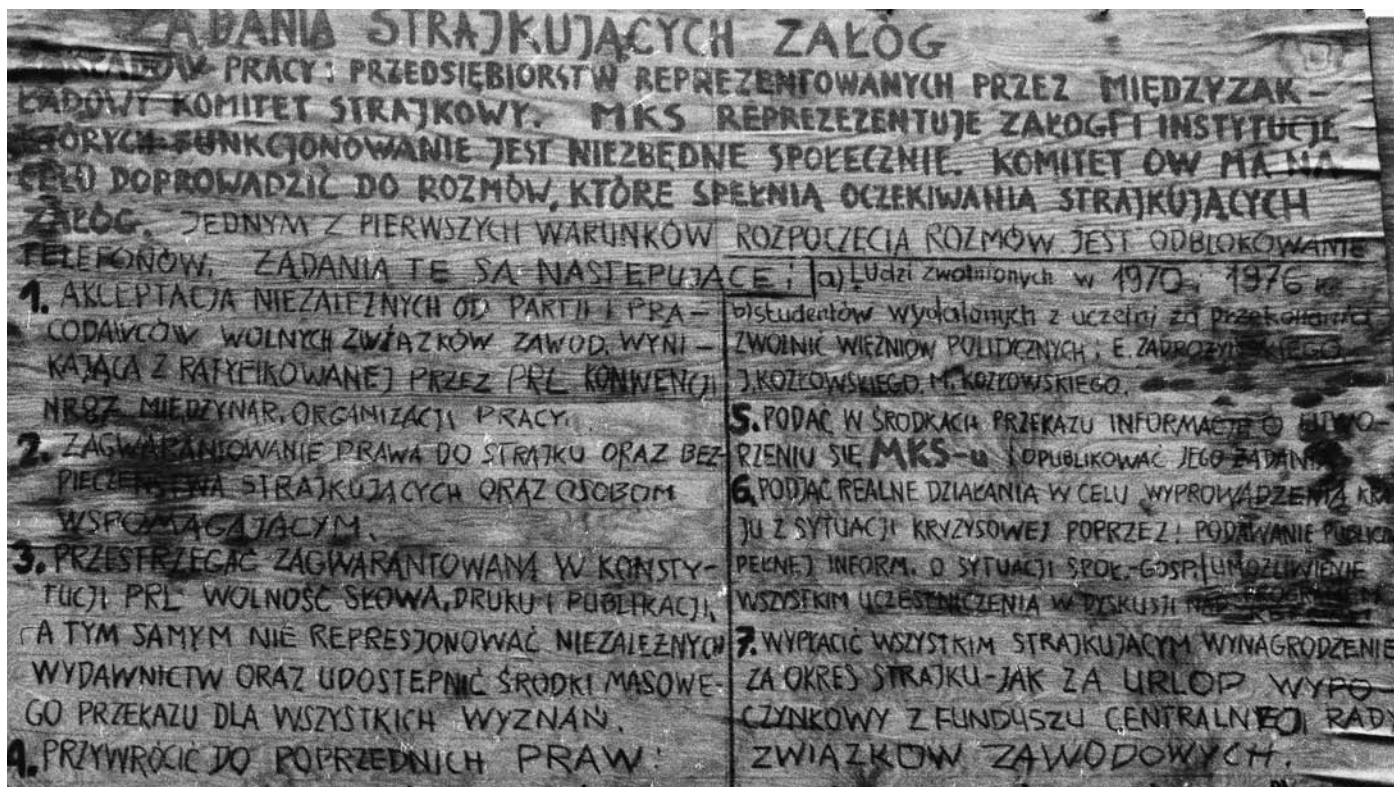 ŻĄDANIA STRAJKUJĄCYCH ZAŁÓG
ZAKŁADÓW PRACY I PRZEDSIĘBIORSTW REPREZENTOWANYCH PRZEZ MIĘDZYZAK-
ŁADOWY KOMITET STRAJKOWY. MKS REPREZEZENTUJE ZAŁOGI I INSTYTUCJE
KTÓRYCH FUNKCJONOWANIE JEST NIEZBĘDNE SPOŁECZNIE. KOMITET ÓW MA NA
CELU DOPROWADZIĆ DO ROZMÓW, KTÓRE SPEŁNIĄ OCZEKIWANIA STRAJKUJĄCYCH
ZAŁÓG. JEDNYM Z PIERWSZYCH WARUNKÓW ROZPOCZĘCIA ROZMÓW JEST ODBLOKOWANIE
TELEFONÓW. ŻĄDANIA TE SĄ NASTĘPUJĄCE:
1. AKCEPTACJA NIEZALEŻNYCH OD PARTII I PRA-
CODAWCÓW WOLNYCH ZWIĄZKÓW ZAWOD. WYNI-
KAJĄCA Z RATYFIKOWANEJ PRZEZ PRL KONWENCJI
NR87 MIĘDZYNAR. ORGANIZACJI PRACY.
2. ZAGWARANTOWANIE PRAWA DO STRAJKU ORAZ BEZ-
PIECZEŃSTWA STRAJKUJĄCYCH ORAZ OSOBOM
WSPOMAGAJĄCYM.
3. PRZESTRZEGAĆ ZAGWARANTOWANĄ W KONSTY-
TUCJI PRL WOLNOŚĆ SŁOWA, DRUKU I PUBLIKACJI,
A TYM SAMYM NIE REPRESJONOWAĆ NIEZALEŻNYCH
WYDAWNICTW ORAZ UDOSTĘPNIĆ ŚRODKI MASOWE-
GO PRZEKAZU DLA WSZYSTKICH WYZNAŃ.
4. PRZYWRÓCIĆ DO POPRZEDNICH PRAW:
a) Ludzi zwolnionych w 1970 i 1976 r.
b) studentów wydalonych z uczelni za przekonania
ZWOLNIĆ WIĘŹNIÓW POLITYCZNYCH: E. ZADROŻYŃSKIEGO,
J. KOZŁOWSKIEGO, M. KOZŁOWSKIEGO.
5. PODAĆ W ŚRODKACH PRZEKAZU INFORMACJĘ O UTWO-
RZENIU SIĘ MKS-u I OPUBLIKOWAĆ JEGO ŻĄDANIA
6. PODJĄĆ REALNE DZIAŁANIA W CELU WYPROWADZENIA KRA
JU Z SYTUACJI KRYZYSOWEJ POPRZEZ: PODAWANIE PUBLICZ
PEŁNEJ INFORM. O SYTUACJI SPOŁ.-GOSP. | UMOŻLIWIENIE
WSZYSTKIM UCZESTNICZENIA W DYSKUSJI NAD
7. WYPŁACIĆ WSZYSTKIM STRAJKUJĄCYM WYNAGRODZENIE
ZA OKRES STRAJKU-JAK ZA URLOP WYPO
CZYNKOWY Z FUNDUSZU CENTRALNEJ RADY
ZWIĄZKÓW ZAWODOWYCH.